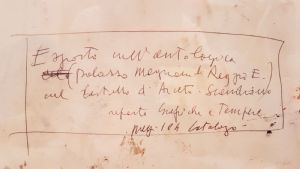 Esposto nell'antologica
(Palazzo Magnani di Reggio E.)
nel Castello d'Arceto - Scandiano
reperto Grafiche e Tempere
pag. 104 Catalogo